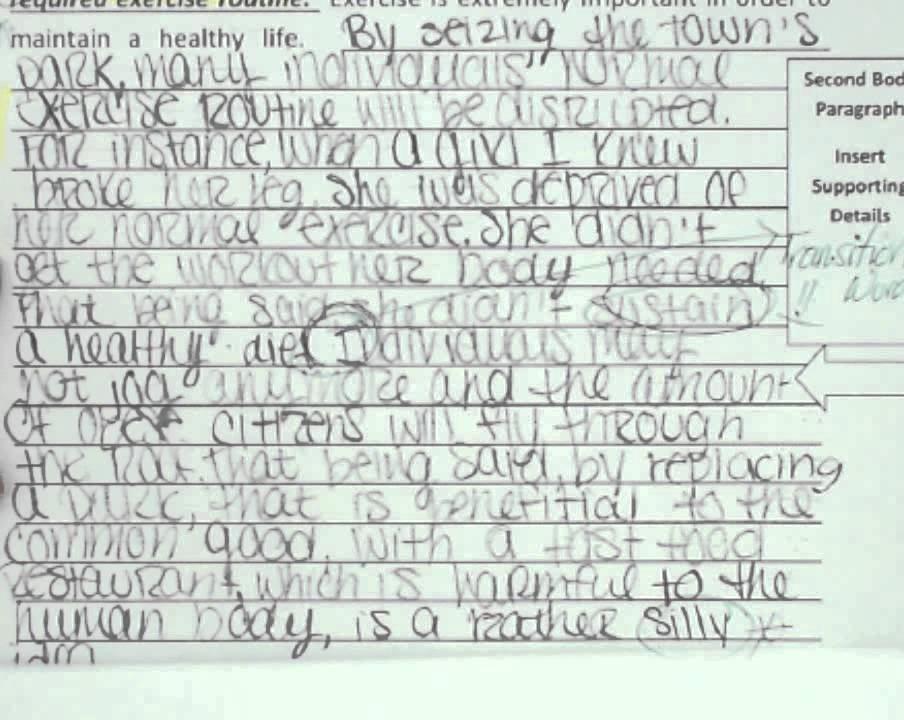 required exercise routine. Exercise is extremely important in order to
maintain a healthy life. By seizing the town's
park, many individuals' normal
exercise routine will be disrupted.
For instance, when a girl I knew
broke her leg, she was deprived of
her normal exercise. She didn't
get the workout her body needed
That being said she didn't sustain
a healthy diet Individuals may
not jog anymore and the amount
of citizens will fly through
the that being said, by replacing
a park, that is benefitial to the
common good, with a fast food
restaurant, which is harmful to the
human body, is a rather silly
Second Bod
Paragraph
Insert
Supporting
Details
Transition
!! Word